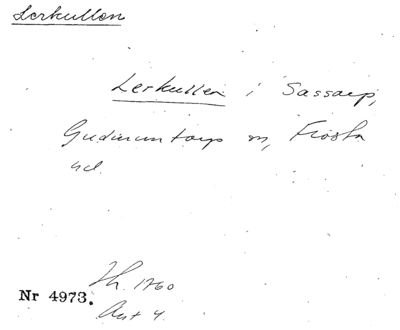 Lerkullen
Lerkullen i Sassarp,
Gudmuntorps sn, Frosta
hd.
Th. 1760
Nr 4973.
Akt 4.